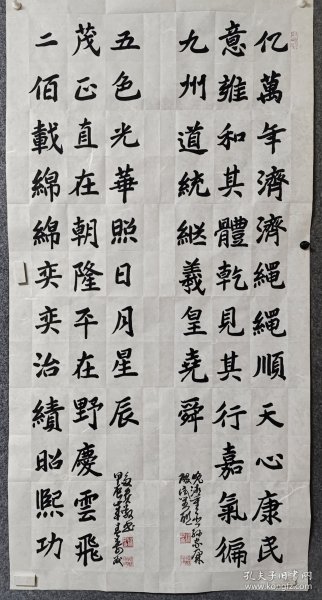 亿萬年濟濟繩繩順天心康民
意雍和其體乾見其行嘉氣徧
九州道統継羲皇堯舜
二佰載綿綿奕奕治績昭熙功
茂正直在朝隆平在野慶雲飛
五色光華照日月星辰
孔夫子旧书网